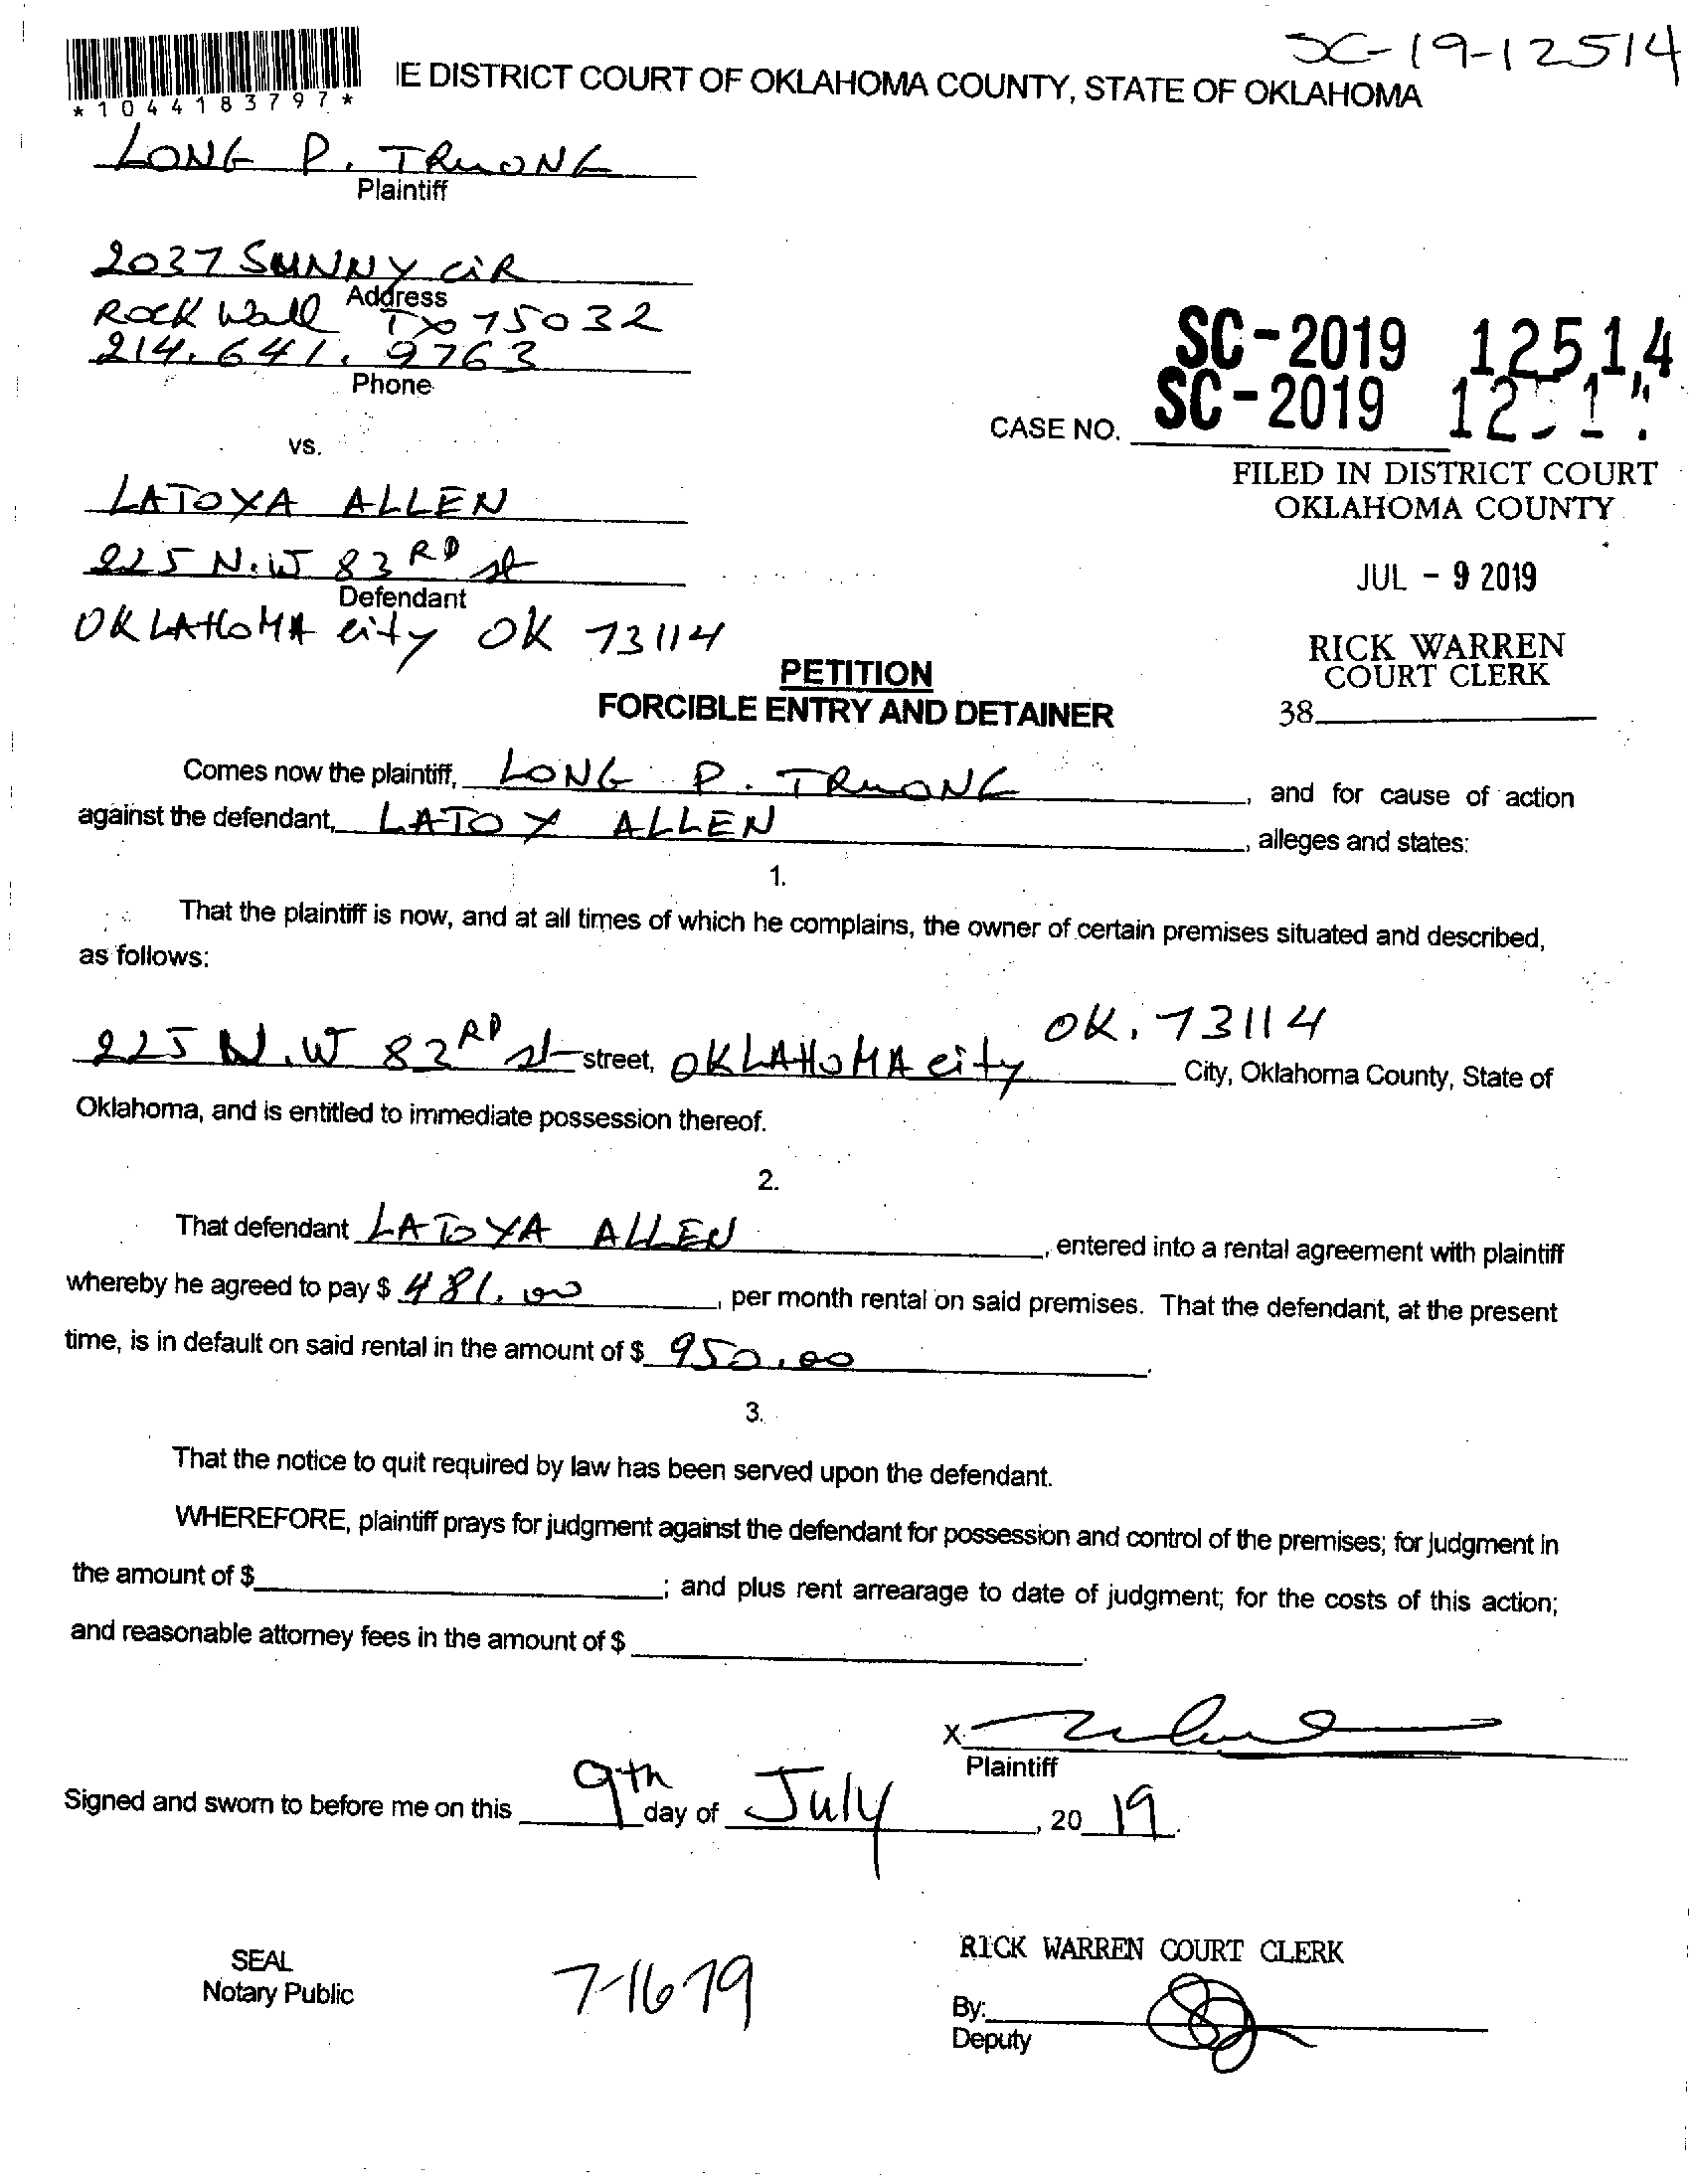 SC-19-12514
*1044183797*
IE DISTRICT COURT OF OKLAHOMA COUNTY, STATE OF OKLAHOMA
LONG P. TRUONG
Plaintiff
2037 SUNNY CiR
Address
Rock Wall TX 75032
214.641.9763
Phone
SC-2019 12514
SC-2019
CASE NO.
vs.
FILED IN DISTRICT COURT
OKLAHOMA COUNTY
LATOYA ALLEN
225 N.W 83RD st
Defendant
JUL - 9 2019
OKLAHOMA city OK 73114
RICK WARREN
COURT CLERK
PETITION
FORCIBLE ENTRY AND DETAINER
38
Comes now the plaintiff, LONG P. TRUONG, and for cause of action
against the defendant, LATOY ALLEN, alleges and states:
1.
That the plaintiff is now, and at all times of which he complains, the owner of certain premises situated and described,
as follows:
225 N.W 83RD st street, OKLAHOMA city OK. 73114 City, Oklahoma County, State of
Oklahoma, and is entitled to immediate possession thereof.
2.
That defendant LATOYA ALLEN, entered into a rental agreement with plaintiff
whereby he agreed to pay $ 481.00, per month rental on said premises. That the defendant, at the present
time, is in default on said rental in the amount of $ 950.00.
3.
That the notice to quit required by law has been served upon the defendant.
WHEREFORE, plaintiff prays for judgment against the defendant for possession and control of the premises; for judgment in
the amount of $; and plus rent arrearage to date of judgment; for the costs of this action;
and reasonable attorney fees in the amount of $.
X
Plaintiff
Signed and sworn to before me on this 9th day of July, 20 19.
SEAL
Notary Public
7-16-19
RICK WARREN COURT CLERK
By:
Deputy